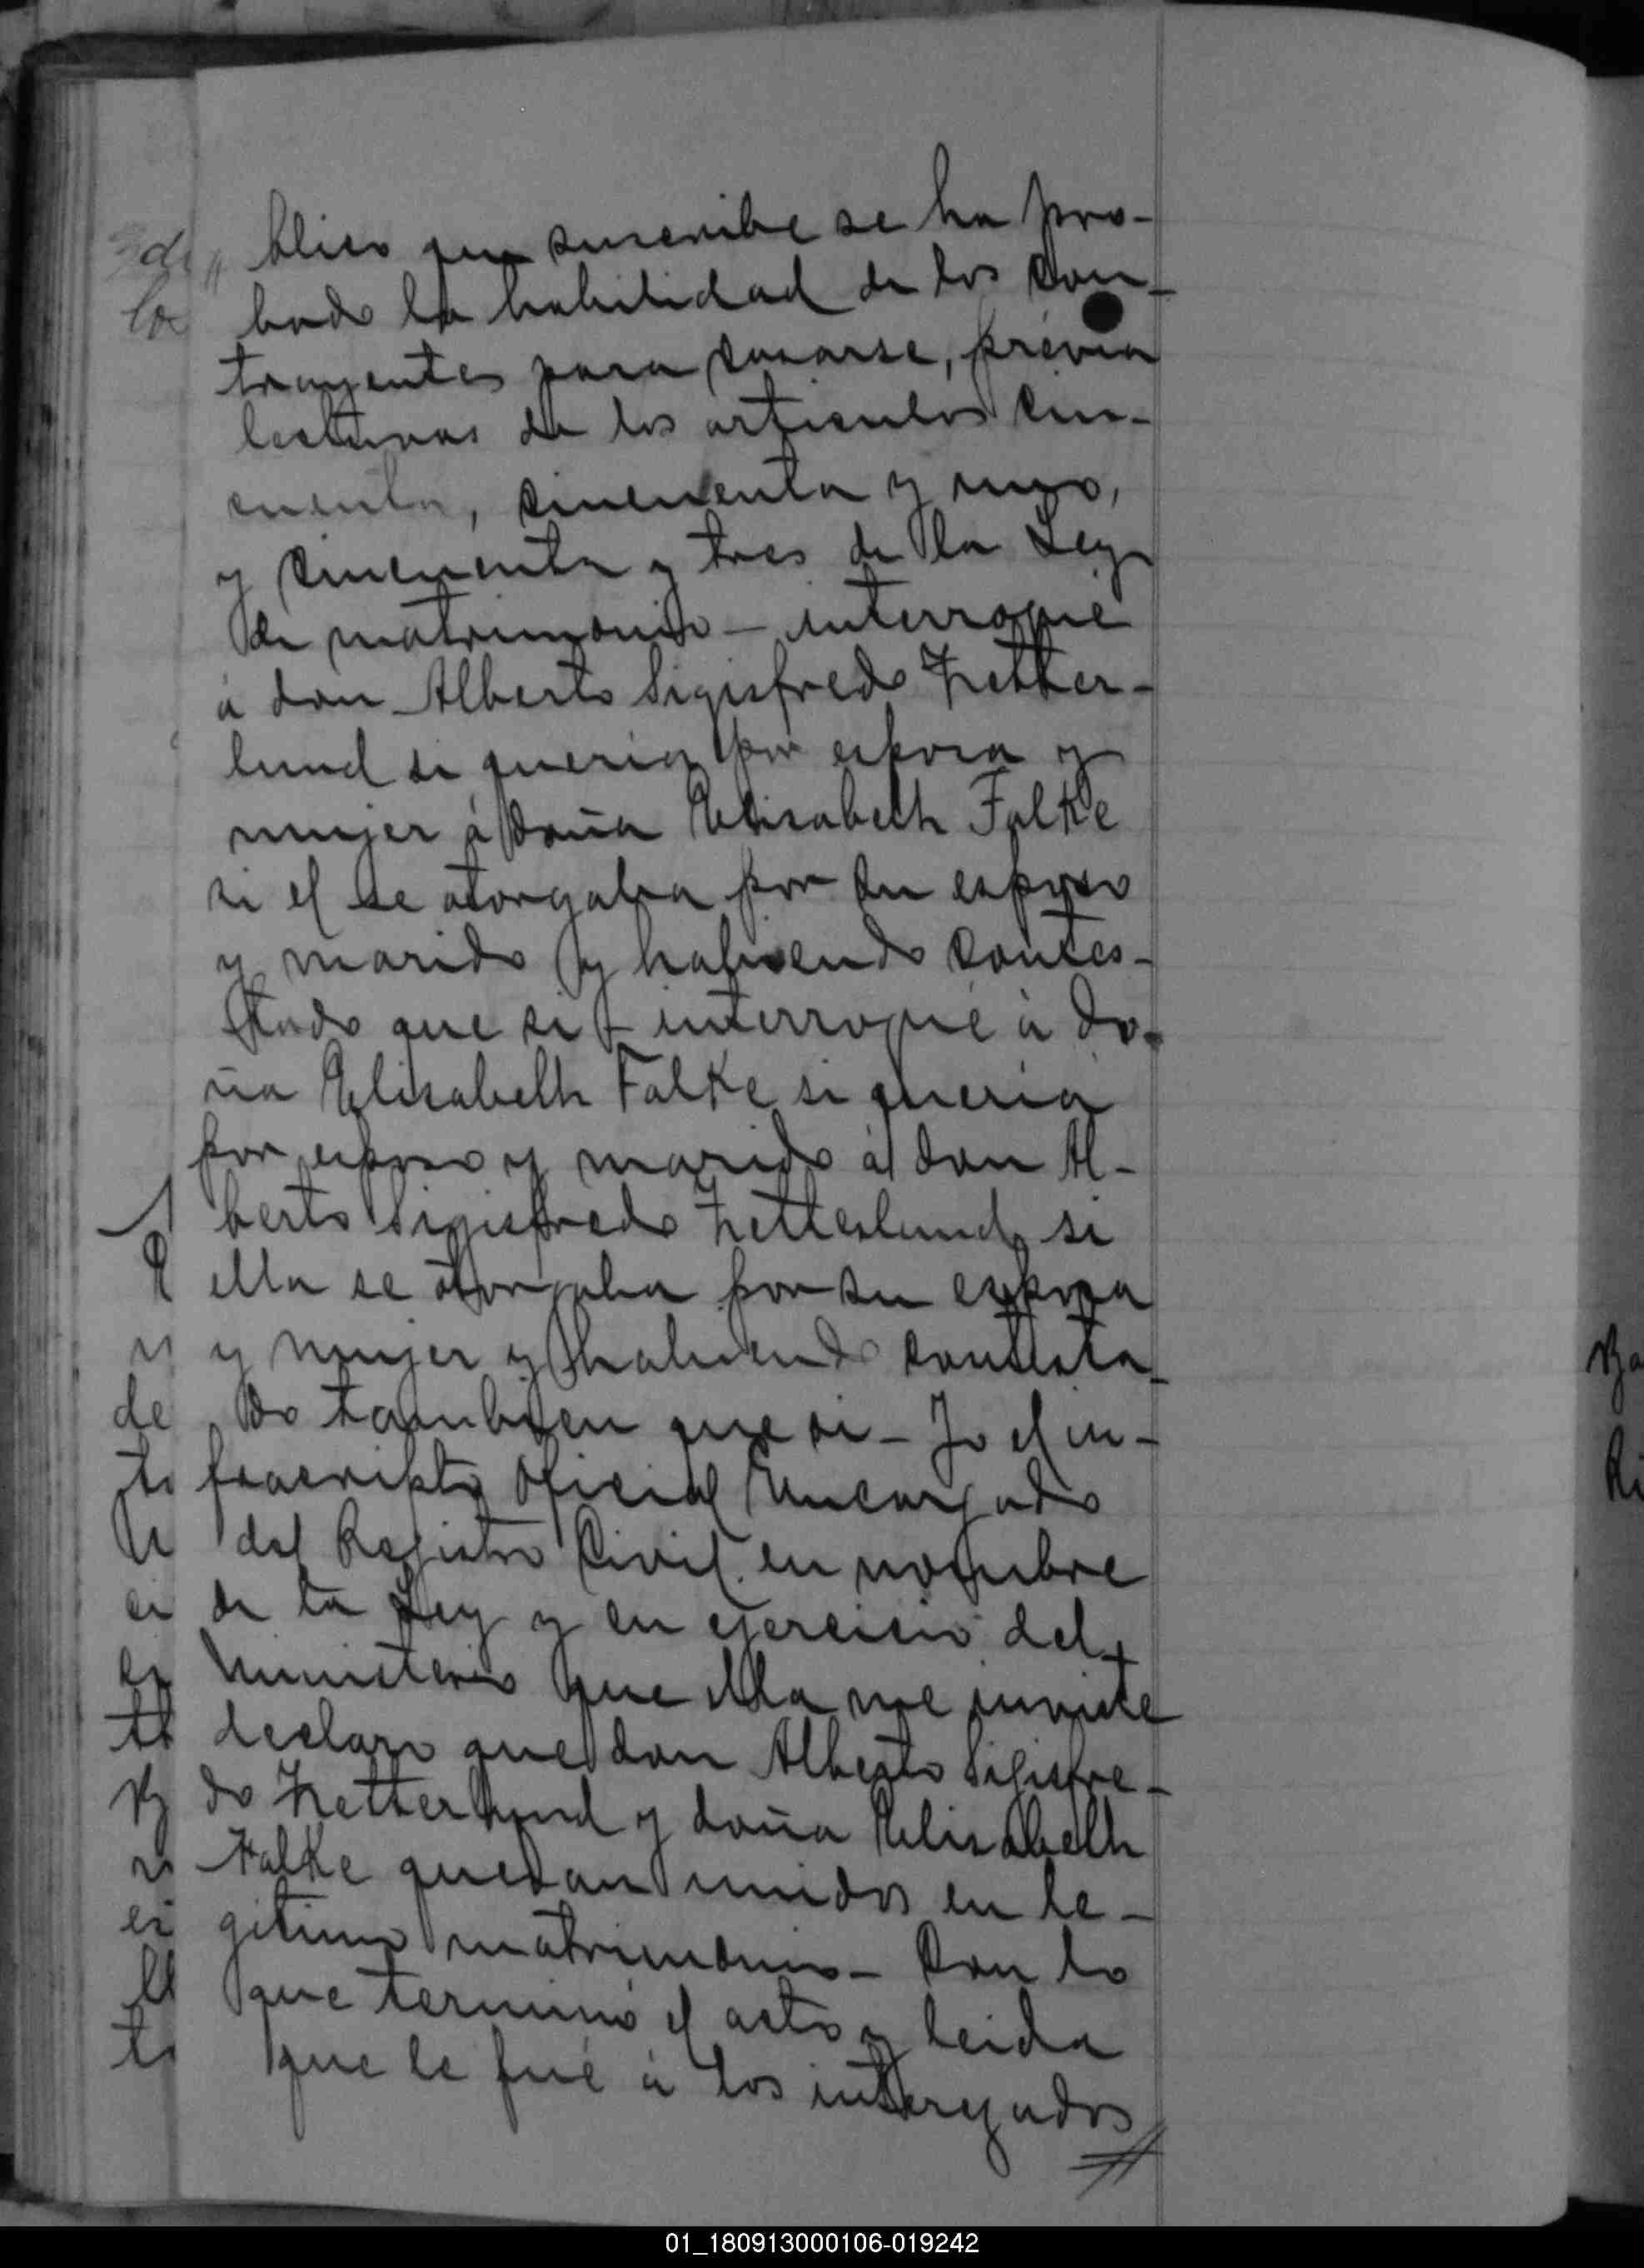 blico que suscribe se ha pro-
bado la habilidad de los con-
trayentes para casarse, prévia
lecturas de los articulos cin-
cuenta, cincuenta y uno,
y cincuenta y tres de la Ley
de matrimonio - interrogué
á don Alberto Sigisfredo Zetter-
lund si queria por esposa y
mujer á doña Elisabeth Falke
si el se otorgaba por su esposo
y marido y habiendo contes-
tado que si - interrogué á do-
ña Elisabeth Falke si queria
por esposo y marido á don Al-
berto Sigisfredo Zetterlund si
ella se otorgaba por su esposa
y mujer y habiendo contesta-
do tambien que si - Yo el in-
frascripto Oficial Encargado
del Registro Civil en nombre
de la Ley y en ejercicio del
ministerio que ella me inviste
declaro que don Alberto Sigisfre-
do Zetterlund y doña Elisabeth
Falke quedan unidos en le-
gitimo matrimonio - Con lo
que terminó el acto y leida
que le fué á los
01_180913000106-019242